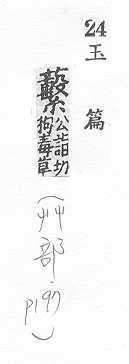 24 玉篇
蘻 公詣切 狗毒草
(艸部. p197)